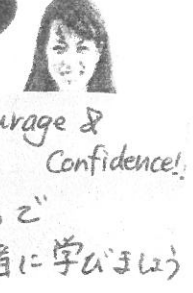 urage &
Confidence!
で
者に学びましょう